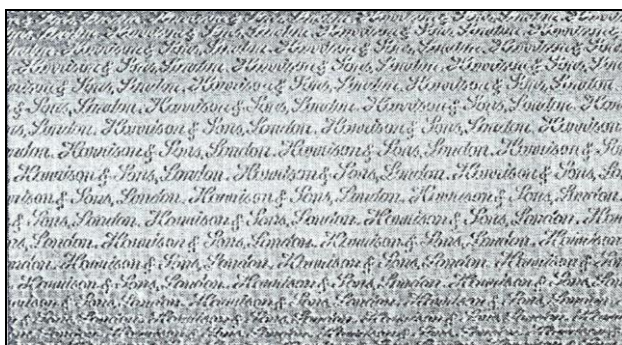 Harrison & Sons, London. Harrison & Sons, London.
Harrison & Sons, London. Harrison & Sons, London.
Harrison & Sons, London. Harrison & Sons, London. Harrison & Sons,
& Sons, London. Harrison & Sons, London. Harrison & Sons, London.
& Sons, London. Harrison & Sons, London. Harrison & Sons, London.
London. Harrison & Sons, London. Harrison & Sons, London.
Harrison & Sons, London. Harrison & Sons, London. Harrison &
Harrison & Sons, London. Harrison & Sons, London. Harrison & Sons,
& Sons, London. Harrison & Sons, London. Harrison & Sons, London.
& Sons, London. Harrison & Sons, London. Harrison & Sons, London.
London. Harrison & Sons, London. Harrison & Sons, London.
Harrison & Sons, London. Harrison & Sons, London. Harrison &
Harrison & Sons, London. Harrison & Sons, London. Harrison & Sons,
& Sons, London. Harrison & Sons, London. Harrison & Sons, London.